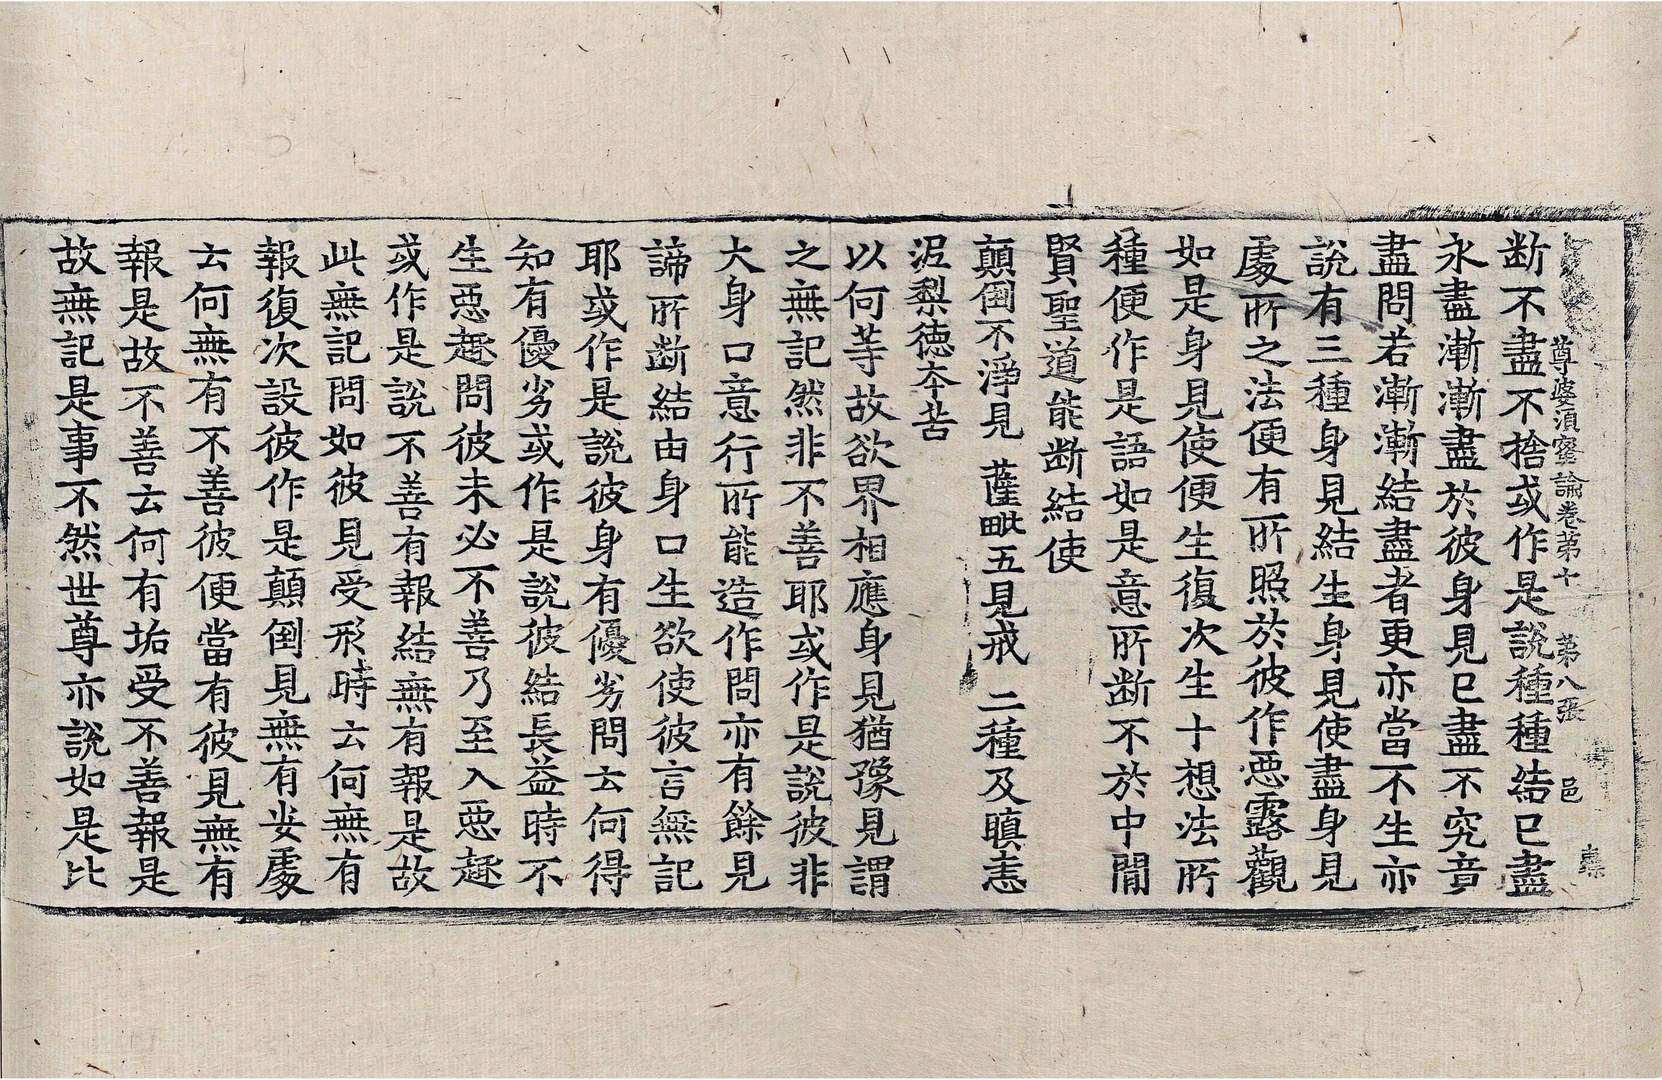 尊婆湏蜜論卷第十 第八張 邑
断不盡不捨或作是說種種結已盡
永盡漸漸盡於彼身見已盡不究竟
盡問若漸漸結盡者更亦當不生亦
說有三種身見結生身見使盡身見
處所之法便有所照於彼作惡露觀
如是身見使便生復次生十想法所
種便作是語如是意所断不於中間
賢聖道能断結使
顛倒不淨見 薩毗五見戒 二種及瞋恚
泥梨德夲苦
以何等故欲界相應身見猶豫見謂
之無記然非不善耶或作是說彼非
大身口意行所能造作問亦有餘見
諦所断結由身口生欲使彼言無記
耶或作是說彼身有優劣問云何得
知有優劣或作是說彼結長益時不
生惡趣問彼未必不善乃至入惡趣
或作是說不善有報結無有報是故
此無記問如彼見受形時云何無有
報復次設彼作是顛倒見無有安處
云何無有不善彼便當有彼見無有
報是故不善云何有垢受不善報是
故無記是事不然世尊亦說如是比